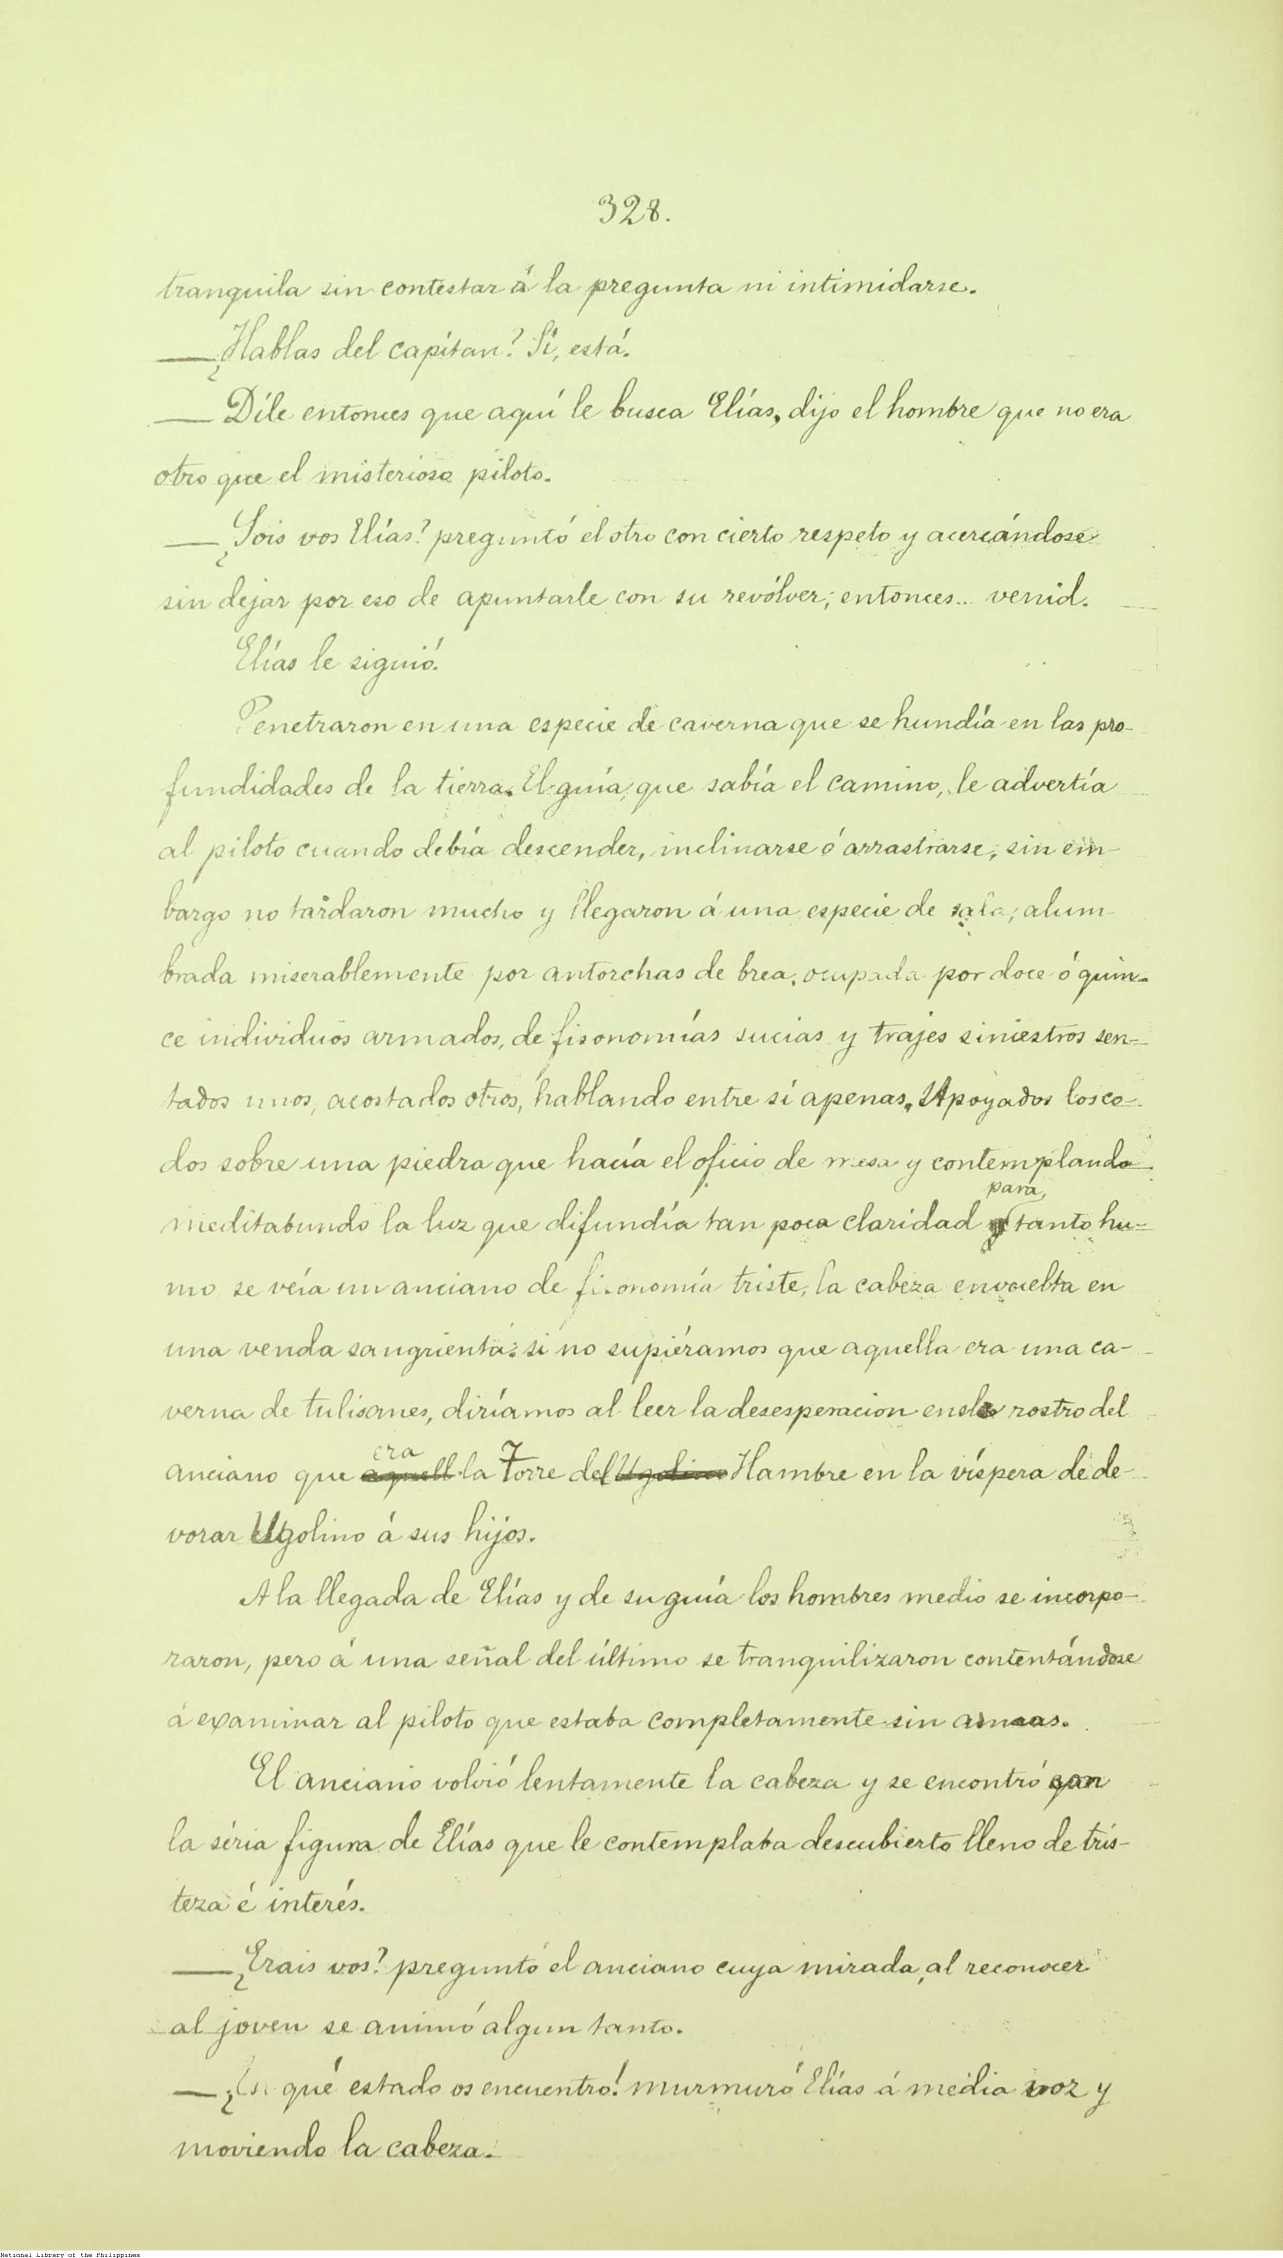 328.
tranquila sin contestar á la pregunta ni intimidarse.
—¿Hablas del capitan? Sí, está.
— Díle entonces que aquí le busca Elías, dijo el hombre que no era
otro que el misterioso piloto.
—¿Sois vos Elías? preguntó el otro con cierto respeto y acercándose
sin dejar por eso de apuntarle con su revólver; entonces... venid.
Elías le siguió.
Penetraron en una especie de caverna que se hundía en las pro-
fundidades de la tierra. El guía, que sabía el camino, le advertía
al piloto cuando debía descender, inclinarse ó arrastrarse; sin em-
bargo no tardaron mucho y llegaron á una especie de sala, alum-
brada miserablemente por antorchas de brea, ocupada por doce ó quin-
ce individuos armados, de fisonomías sucias y trajes siniestros sen-
tados unos, acostados otros, hablando entre sí apenas. Apoyados los co-
dos sobre una piedra que hacía el oficio de mesa y contemplando
meditabundo la luz que difundía tan poca claridad para tanto hu-
mo se veía un anciano de fisonomía triste, la cabeza envuelta en
una venda sangrienta: si no supiéramos que aquella era una ca-
verna de tulisanes, diríamos al leer la desesperacion en el rostro del
anciano que era aquell la Torre del Ugolino Hambre en la víspera de de-
vorar Ugolino á sus hijos.
A la llegada de Elías y de su guía los hombres medio se incorpo-
raron, pero á una señal del último se tranquilizaron contentándose
á examinar al piloto que estaba completamente sin armas.
El anciano volvió lentamente la cabeza y se encontró con
la séria figura de Elías que le contemplaba descubierto lleno de tris-
teza é interés.
—¿Erais vos? preguntó el anciano cuya mirada, al reconocer
al joven se animó algun tanto.
—¿En qué estado os encuentro! murmuró Elías á media voz y
moviendo la cabeza.
National Library of the Philippines